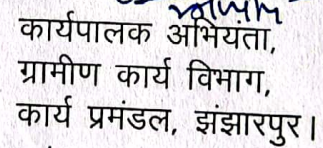 कार्यपालक अभियता,
ग्रामीण कार्य विभाग,
कार्य प्रमंडल, झंझारपुर।